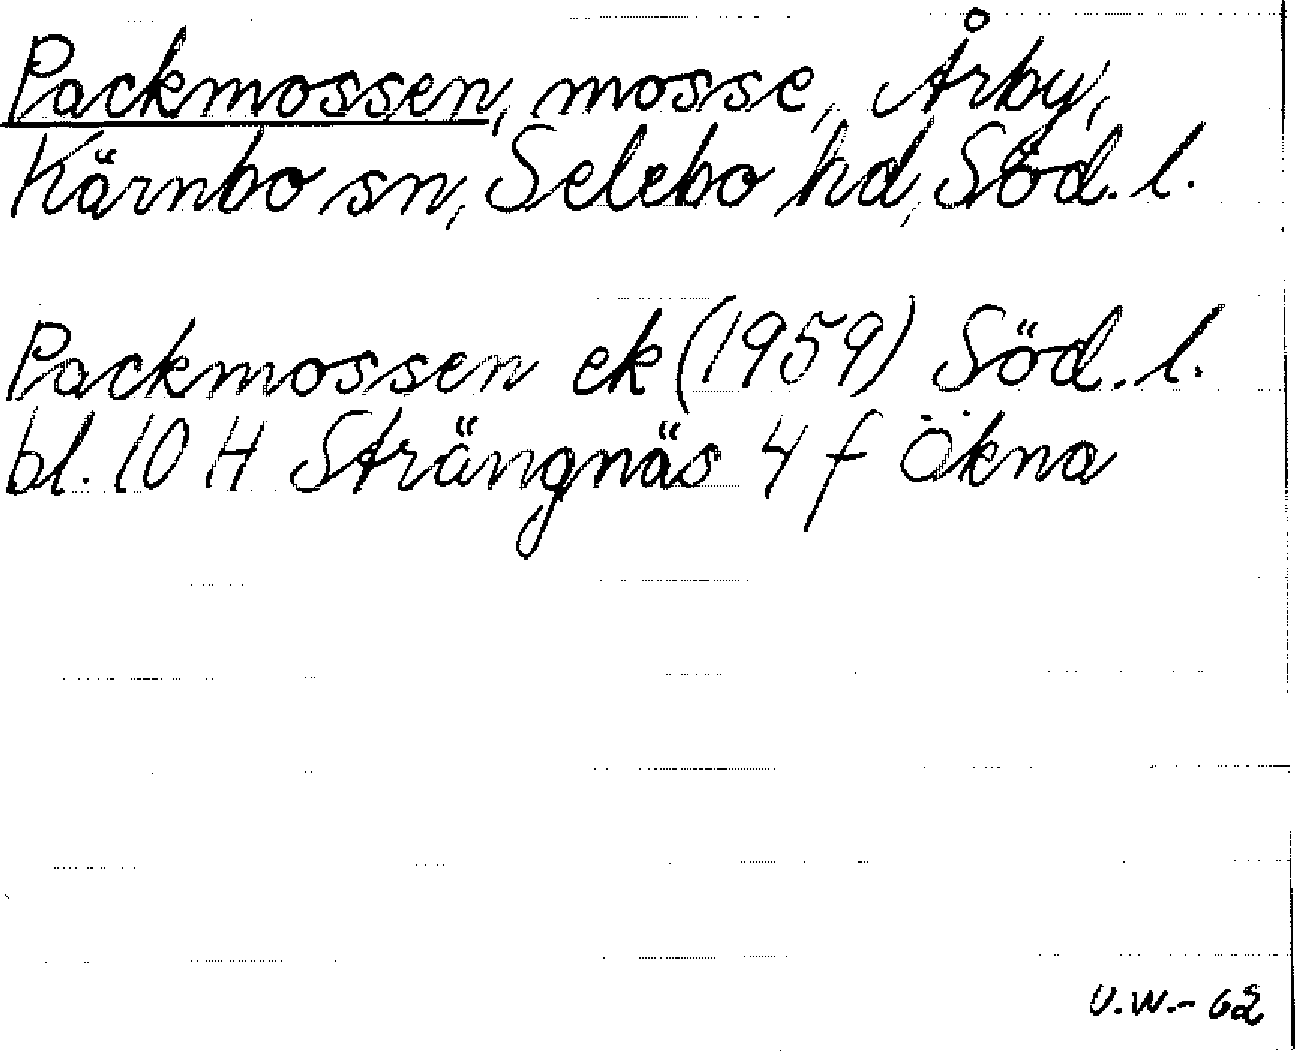 Packmossen, mosse, Årby,
Kärnbo sn, Selebo hd, Söd. l.
Packmossen ek (1959) Söd. l.
bl. 10 H Strängnäs 4 f Ökna
U.W.- 62